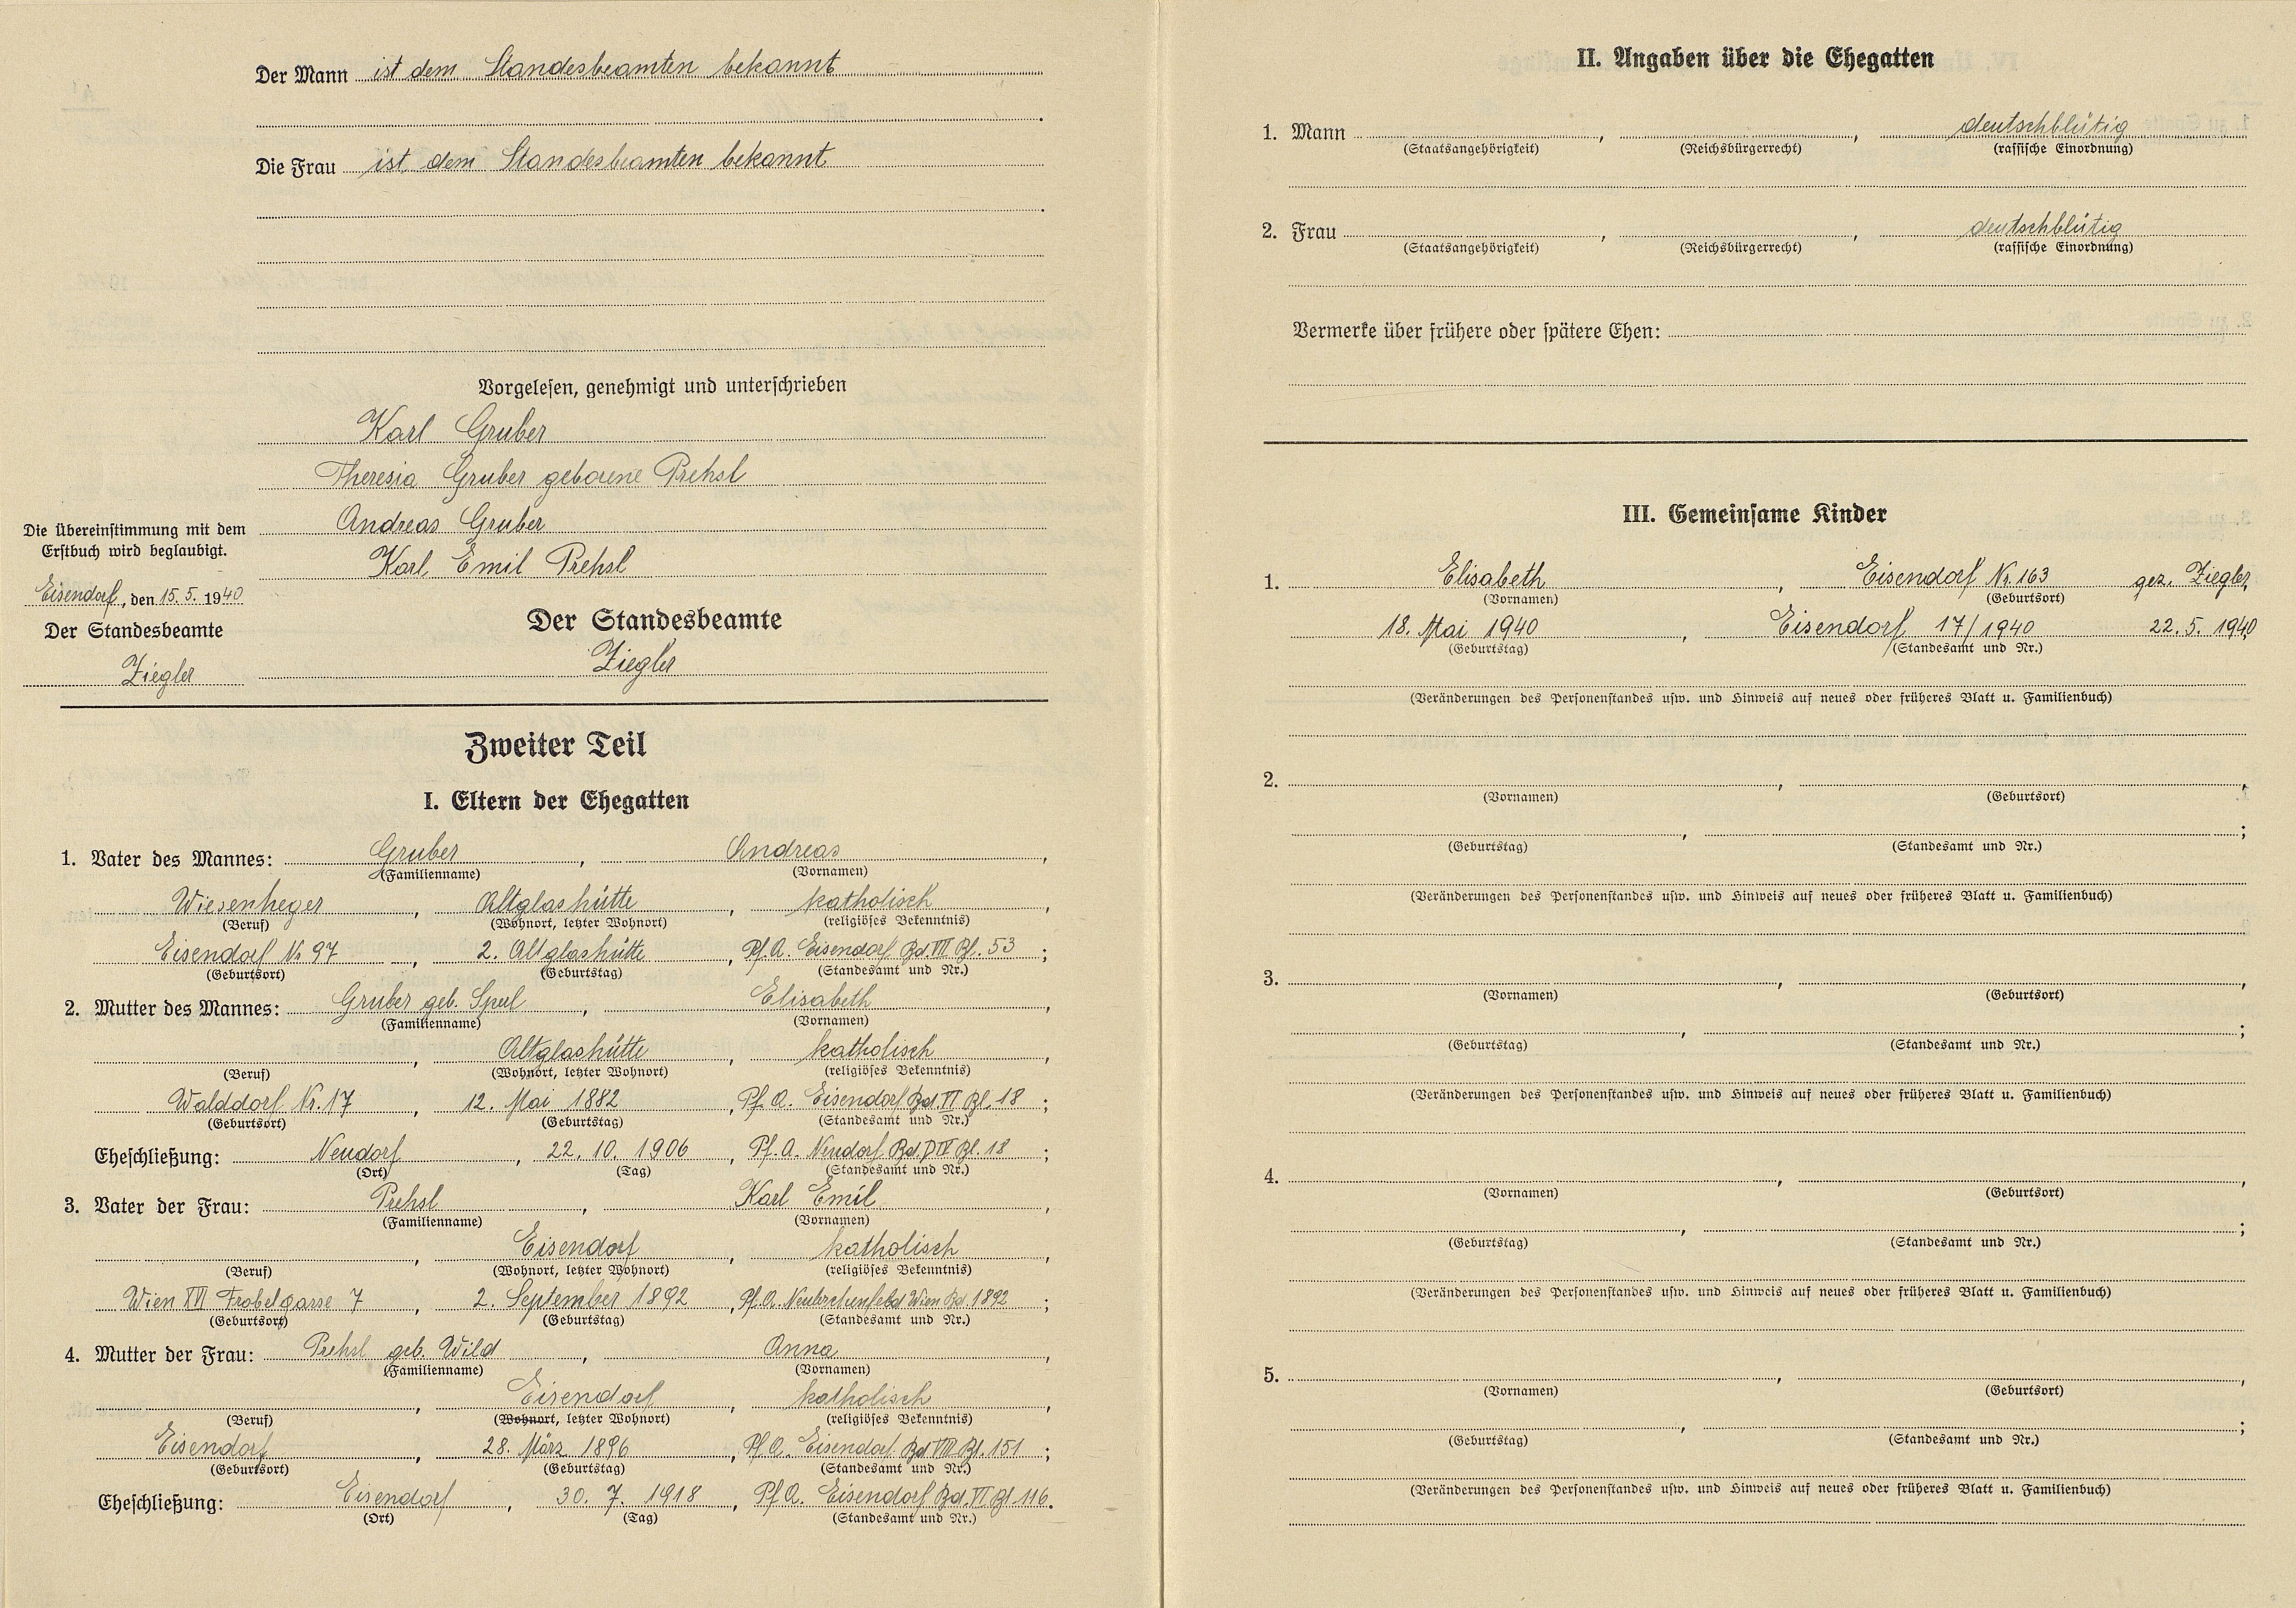 Der Mann ist dem Standesbeamten bekannt
Die Frau ist dem Standesbeamten bekannt
Vorgelesen, genehmigt und unterschrieben
Karl Gruber
Theresia Gruber geborene Prehsl
Andreas Gruber
Karl Emil Prehsl
Die Übereinstimmung mit dem
Erstbuch wird beglaubigt.
Eisendorf, den 15. 5. 1940
Der Standesbeamte
Ziegler
Der Standesbeamte
Ziegler
Zweiter Teil
I. Eltern der Ehegatten
1. Vater des Mannes: Gruber, Andreas,
(Familienname) (Vornamen)
Wiesenheger, Altglashütte, katholisch,
(Beruf) (Wohnort, letzter Wohnort) (religiöses Bekenntnis)
Eisendorf Nr 97, 2. Altglashütte, Pf. A. Eisendorf Bd. VII Bl. 53;
(Geburtsort) (Geburtstag) (Standesamt und Nr.)
2. Mutter des Mannes: Gruber geb. Spul, Elisabeth,
(Familienname) (Vornamen)
, Altglashütte, katholisch,
(Beruf) (Wohnort, letzter Wohnort) (religiöses Bekenntnis)
Walddorf Nr. 17, 12. Mai 1882, Pf. A. Eisendorf Bd. VI Bl. 18;
(Geburtsort) (Geburtstag) (Standesamt und Nr.)
Eheschließung: Neudorf, 22. 10. 1906, Pf. A. Neudorf Bd. Bl. 18;
(Ort) (Tag) (Standesamt und Nr.)
3. Vater der Frau: Prehsl, Karl Emil,
(Familienname) (Vornamen)
, Eisendorf, katholisch,
(Beruf) (Wohnort, letzter Wohnort) (religiöses Bekenntnis)
Wien XVI Frobelgasse 7, 2. September 1892, Pf. A. Wien Bd. 1892;
(Geburtsort) (Geburtstag) (Standesamt und Nr.)
4. Mutter der Frau: Prehsl geb. Wild, Anna,
(Familienname) (Vornamen)
, Eisendorf, katholisch,
(Beruf) (Wohnort, letzter Wohnort) (religiöses Bekenntnis)
Eisendorf, 28. März 1896, Pf. A. Eisendorf Bd VIII Bl. 151;
(Geburtsort) (Geburtstag) (Standesamt und Nr.)
Eheschließung: Eisendorf, 30. 7. 1918, Pf. A. Eisendorf Bd. VI Bl 116.
(Ort) (Tag) (Standesamt und Nr.)
II. Angaben über die Ehegatten
1. Mann , , deutschblütig
(Staatsangehörigkeit) (Reichsbürgerrecht) (rassische Einordnung)
2. Frau , , deutschblütig
(Staatsangehörigkeit) (Reichsbürgerrecht) (rassische Einordnung)
Vermerke über frühere oder spätere Ehen:
III. Gemeinsame Kinder
1. Elisabeth, Eisendorf Nr. 163 gez. Ziegler,
(Vornamen) (Geburtsort)
18. Mai 1940, Eisendorf 17/1940 22. 5. 1940;
(Geburtstag) (Standesamt und Nr.)
(Veränderungen des Personenstandes usw. und Hinweis auf neues oder früheres Blatt u. Familienbuch)
2. , ,
(Vornamen) (Geburtsort)
, ;
(Geburtstag) (Standesamt und Nr.)
(Veränderungen des Personenstandes usw. und Hinweis auf neues oder früheres Blatt u. Familienbuch)
3. , ,
(Vornamen) (Geburtsort)
, ;
(Geburtstag) (Standesamt und Nr.)
(Veränderungen des Personenstandes usw. und Hinweis auf neues oder früheres Blatt u. Familienbuch)
4. , ,
(Vornamen) (Geburtsort)
, ;
(Geburtstag) (Standesamt und Nr.)
(Veränderungen des Personenstandes usw. und Hinweis auf neues oder früheres Blatt u. Familienbuch)
5. , ,
(Vornamen) (Geburtsort)
, ;
(Geburtstag) (Standesamt und Nr.)
(Veränderungen des Personenstandes usw. und Hinweis auf neues oder früheres Blatt u. Familienbuch)